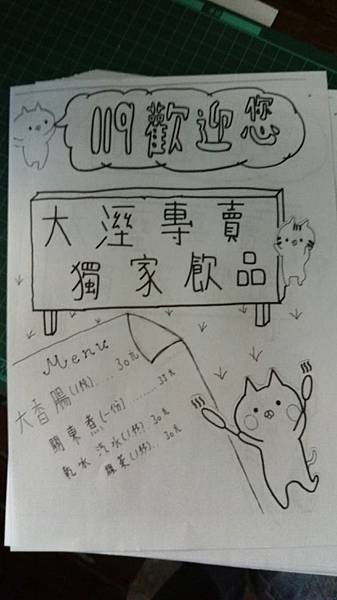 119歡迎您
大溼專賣
獨家飲品
Menu
大香腸(1枝)....30元
關東煮(一份)........35元
氣水 汽水(1杯).30元
綠茶(1杯)..30元